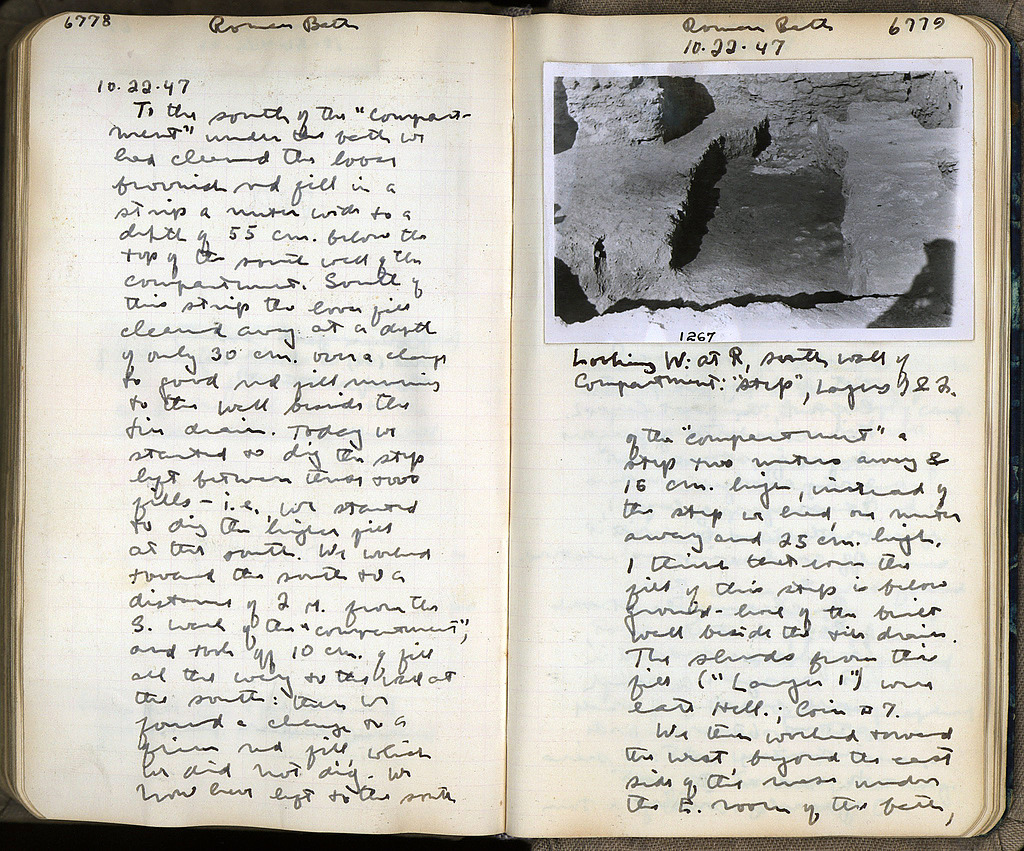 6778 Roman Bath
10.22.47
To the south of the "compart-
ment" under the bath we
had cleaned the loose
brownish red fill in a
strip a meter wide to a
depth of 55 cm. below the
top of the south wall of the
compartment. South of
this strip the loose fill
cleaned away at a depth
of only 30 cm. over a change
to good red fill running
to the wall beside the
tile drain. Today we
started to dig the step
left between these two
fills - i.e., we started
to dig the higher fill
at the south. We worked
toward the south to a
distance of 2 M. from the
S. wall of the "compartment",
and took off 10 cm. of fill
all the way to the wall at
the south: then we
found a change to a
firm red fill, which
we did not dig. We
now have left to the south
Roman Bath 6779
10.22.47
1267
Looking W: at R, south wall of
Compartment: "step", Layers 1 & 2.
of the "compartment" a
step two meters away &
15 cm. high, instead of
the step we had, one meter
away and 25 cm. high.
I think that even the
fill of this step is below
ground-level of the built
wall beside the tile drain.
The sherds from this
fill ("Layer 1") were
late Hell.; Coin #7.
We then worked toward
the west beyond the east
side of the mass under
the E. room of the bath,